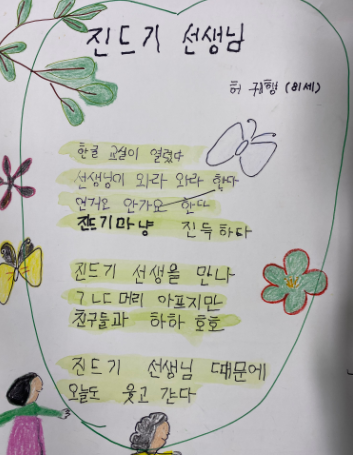 진드기 선생님
허 귀행 (81세)
한글 교실이 열렸다
선생님이 와라 와라 한다
안가요 한다
진드기마냥 진득하다
진드기 선생을 만나
ㄱㄴㄷ 머리 아프지만
친구들과 하하 호호
진드기 선생님 때문에
오늘도 웃고 간다